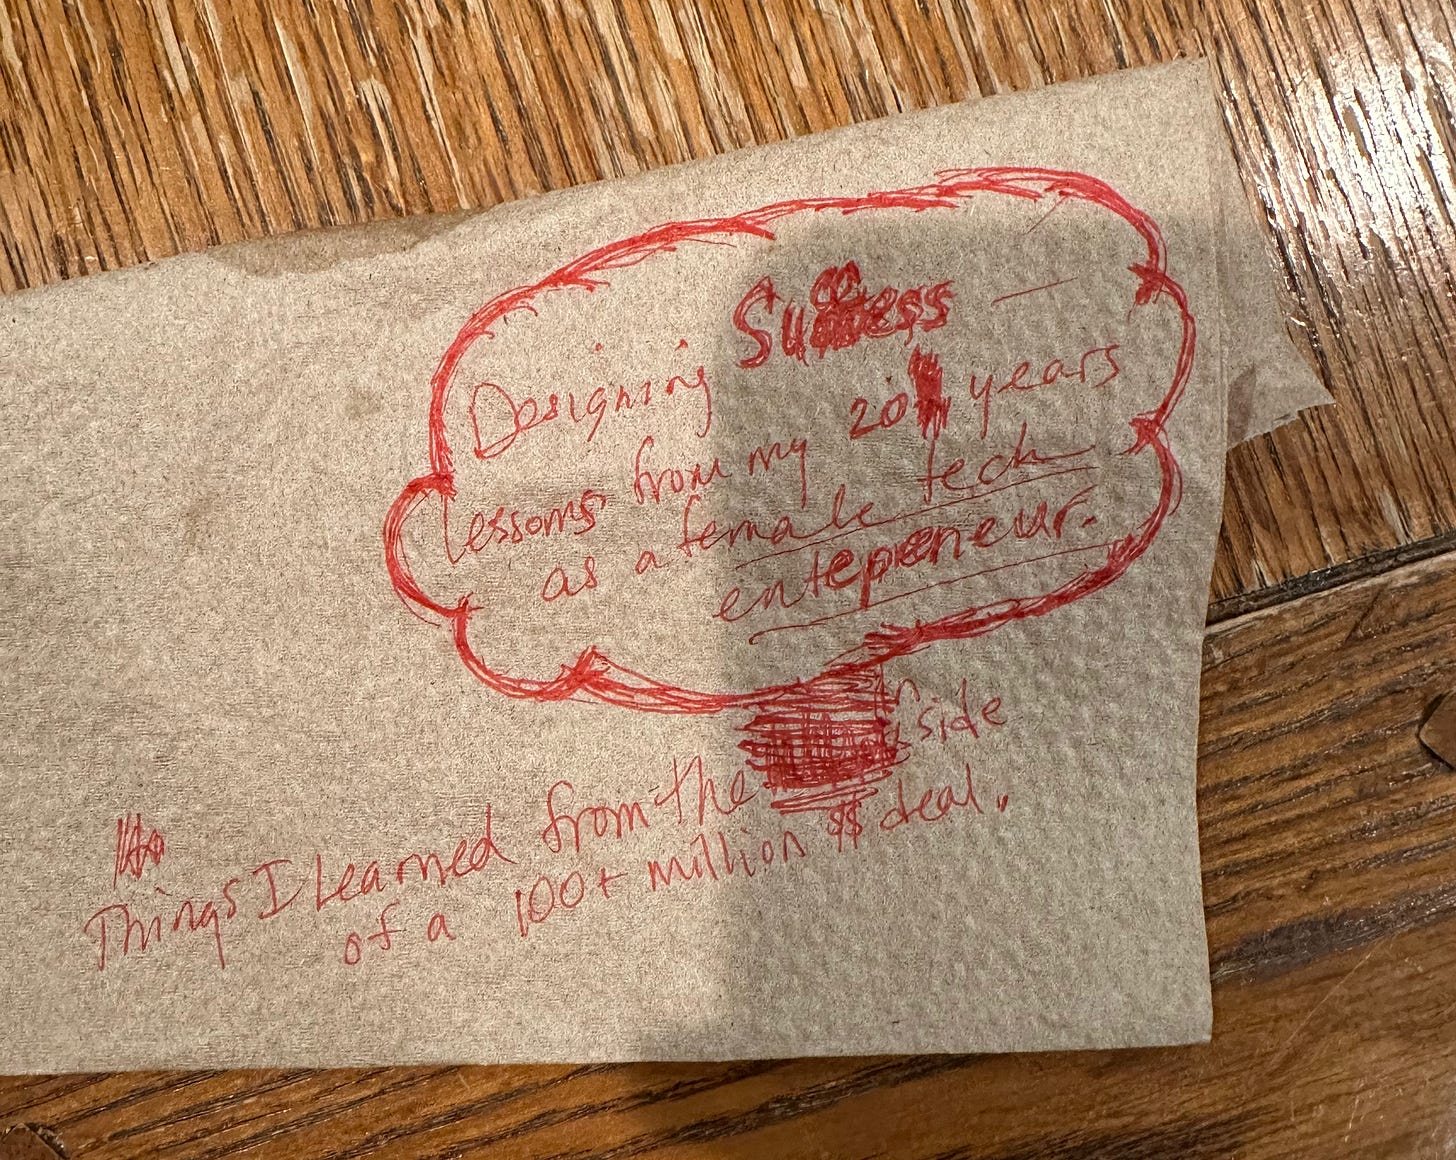 Designing Success —
lessons from my 20 years
as a female tech
entepreneur.
Things I Learned from the side
of a 100+ million $$ deal.